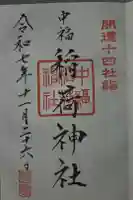 開運十四社詣
中福
稲荷神社
令和七年十一月二十六日